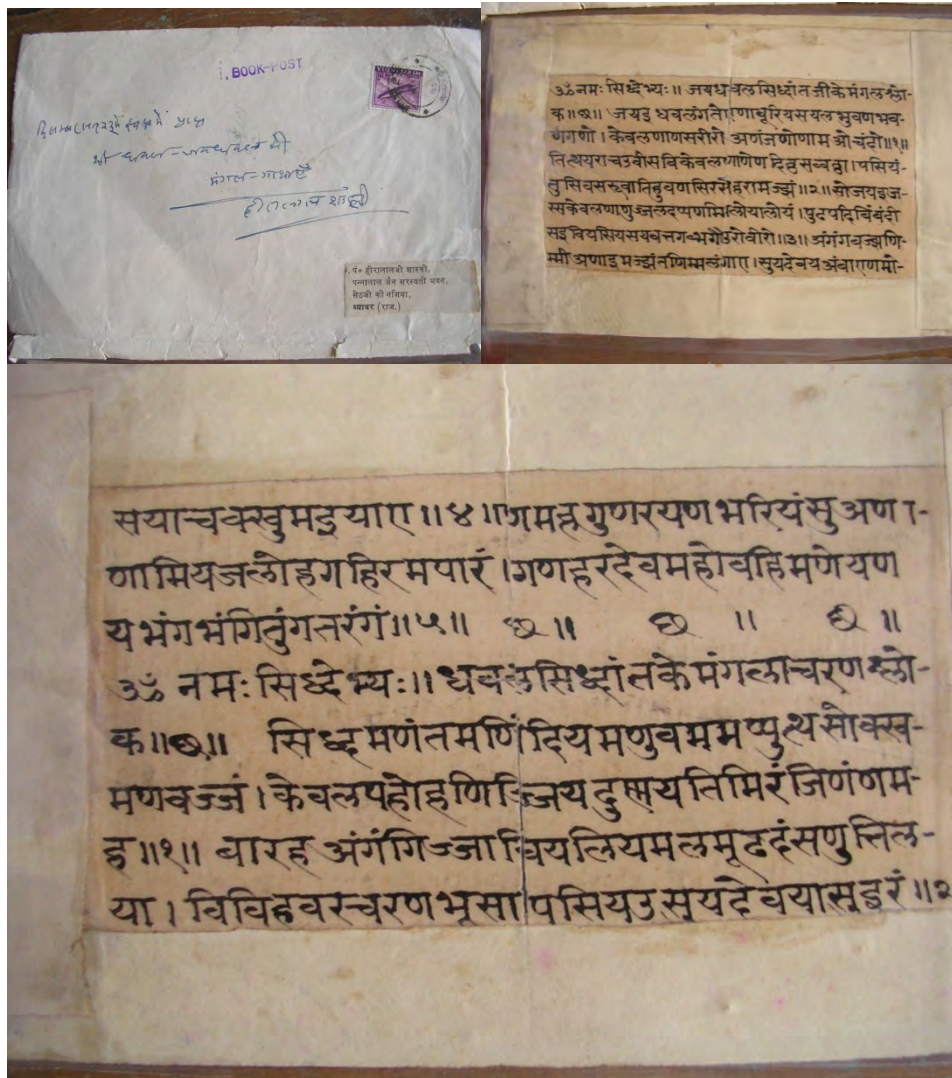 BOOK-POST
श्री धवल-जयधवल की
मंगल-गाथाएँ
हीरालाल शास्त्री
पं० हीरालालजी शास्त्री,
पन्नालाल जैन सरस्वती भवन,
सेठजी की नसियां,
ब्यावर (राज.)
ॐ नमः सिध्देभ्यः॥ जयधवलसिध्दांतजीकेमंगलश्लो-
क॥छ॥ जयइ धवलंगतेएणाधूरियसयलभुवणभव-
णगणो। केवलणाणसरीरो अणंजणोणामओचंदो॥१॥
तित्थयराचउवीसविकेवलणाणेणदिट्ठसव्वट्ठा।पसियं-
तुसिवसरूवातिहुवणसिरसेहरामज्झं॥२॥सोजयइज-
स्सकेवलणाणुज्जलदप्पणमिलोयालोयं।पुढपदिबिंबंदी
सइवियसियसयवत्तगब्भगउरोवीरो॥३॥अंगंगबज्झणि-
म्मीअणाइमज्झंतणिम्मलंगाए।सुयदेवयअंबाएणमो-
सयाचक्खुमइयाए॥४॥णमहगुणरयणभरियंसुअणा-
णामियजलोहगहिरमपारं।गणहरदेवमहोवहिमणेयण
यभंगभंगितुंगतरंगं॥५॥ छ॥ छ॥ छ॥
ॐ नमःसिध्देभ्यः॥धवलसिध्दांतकेमंगलाचरणश्लो-
क॥छ॥ सिध्दमणंतमणिंदियमणुवममप्पुत्थसोक्ख-
मणवज्जं।केवलपहोहणिज्जियदुण्णयतिमिरंजिणंणम-
ह॥१॥ बारहअंगंगिज्जावियलियमलमूढदंसणुत्तिल-
या।विविहवरचरणभूसापसियउसुयदेवयासुइरं॥२